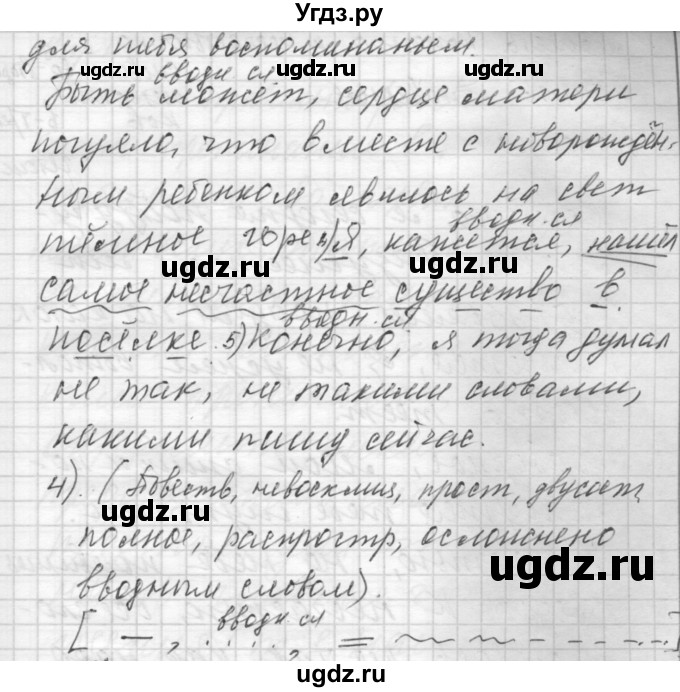 Угдз.ру
для тебя воспоминаньем.
вводн сл
Быть может, сердце матери
почуяло, что вместе с новорождён-
ным ребенком явилось на свет
вводн.сл
тёмное горе 4) Я, кажется, нашёл
самое несчастное существо в
вводн.сл
посёлке. 5) Конечно, я тогда думал
не так, не такими словами,
какими пишу сейчас.
4). (Повеств, невосклиц, прост, двусост,
полное, распростр, осложнено
вводным словом).
вводн сл
ugdz.ru
ugdz.ru
ugdz.ru
ugdz.ru
ugdz.ru
ugdz.ru
ugdz.ru
ugdz.ru
ugdz.ru
ugdz.ru
ugdz.ru